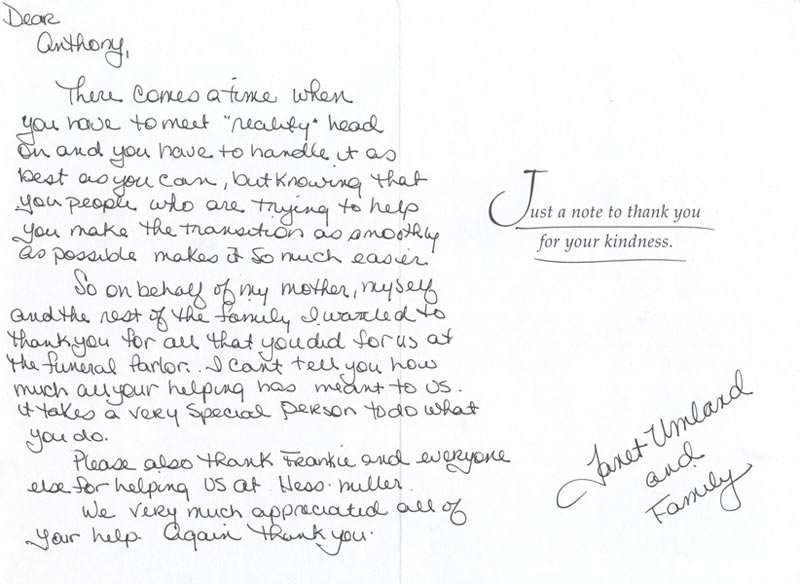 Dear
Anthony,
There comes a time when
you have to meet "reality" head
on and you have to handle it as
best as you can, but knowing that
you people who are trying to help
you make the transition as smoothly
as possible makes it so much easier.
So on behalf of my mother, myself
and the rest of the family I wanted to
thank you for all that you did for us at
the funeral parlor. I can't tell you how
much all your helping has meant to us.
it takes a very special person to do what
you do.
Please also thank Frankie and everyone
else for helping us at Hess-Miller.
We very much appreciated all of
your help. Again thank you.
Just a note to thank you
for your kindness.
Janet Umland
and
Family